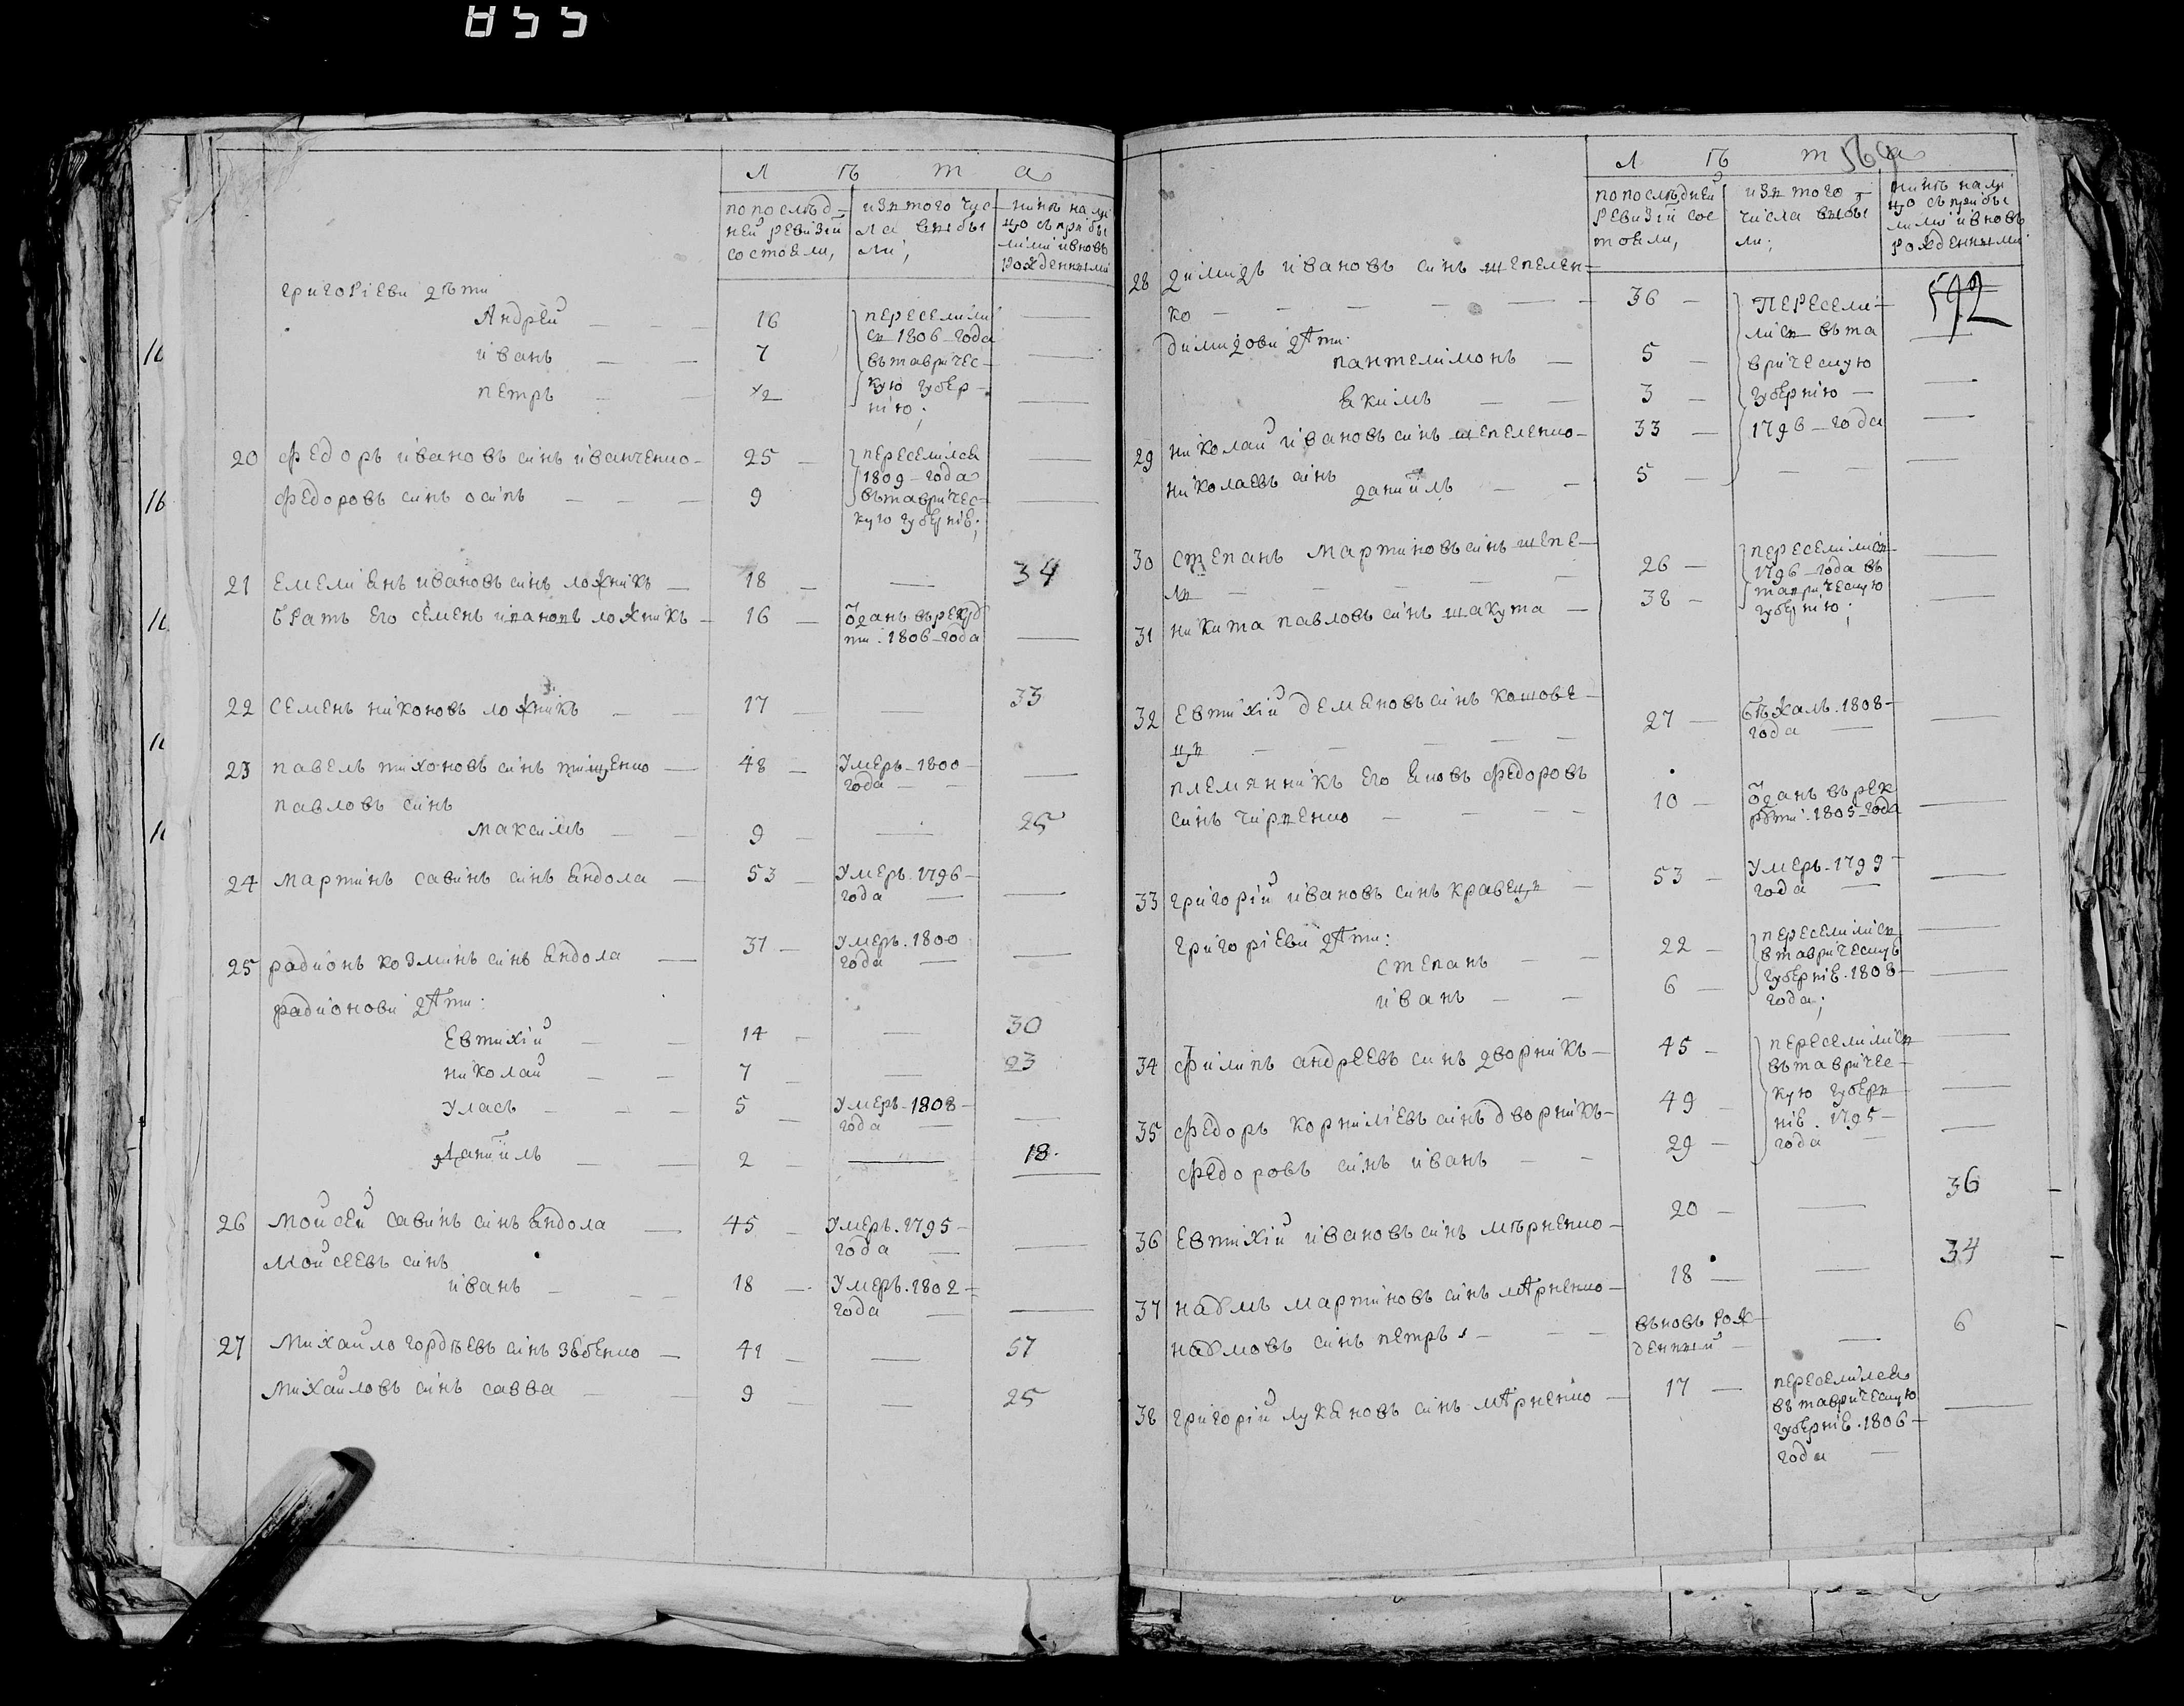 855
Л ѣ т а
по послѣд-
ней ревизій
состояли,
изъ того чис-
ла выбы
ли;
нинѣ на ли
цо съ прибы
лими и вновь
рожденными
григоріеви дѣти
Андрей — — 16
пересилили
ся 1806 года
въ тавричес-
кую губер-
нію;
иванъ — — 7
петръ — — ½
20 Федоръ ивановъ синъ иванченко — 25 —
переселился
1809 — года
въ тавричес-
кую губерніе;
Федоровъ синъ осипъ — — — 9
21 Емелиянъ ивановъ синъ ложникъ — 18 — — 34
братъ его семенъ ивановъ ложникъ — 16 —
ōданъ въ рекру
ти: 1806 — года
22 Семенъ никоновъ ложникъ — — 17 — — 33
23 павелъ тихоновъ синъ тищенко — 48 —
Умеръ — 1800 —
года — —
павловъ синъ
максимъ — — 9 — — 25
24 мартинъ савинъ синъ яндола — 53 —
Умеръ. 1796 —
года —
25 радионъ козминъ синъ яндола — 31 —
Умеръ. 1800
года —
радионови дѣти:
Евтихій — — 14 — — 30
николай — — 7 — — 23
Уласъ — — — 5 —
Умеръ — 1808 —
года —
данїилъ — — 2 — — 18.
26 Мойсей савинъ синъ яндола — 45 —
Умеръ. 1795 —
года —
Мойсеевъ синъ
иванъ — — — 18 —
Умеръ. 1802 —
года —
27 Михайло гордѣевъ синъ зябенко — 41 — — 57
Михайловъ синъ савва — — 9 — — 25
Л ѣ т а
по послѣдней
ревизій сос
тояли,
изъ того —
числа выбы
ли;
нинѣ на ли
цо съ прибы
лими и вновь
рожденными
592
28 димидъ ивановъ синъ шепелен-
ко — — — — — 36 —
Пересели-
лися въ та
врическую
губернію —
1796 — года
димидови дѣти:
пантелимонъ — 5 —
якимъ — — 3 —
29 николай ивановъ синъ шепеленко — 33 —
николаевъ синъ
данїилъ — — 5 —
30 степанъ мартиновъ синъ шепе-
ля — — — — 26 —
переселились
1796 — года въ
таврическую
губернію;
31 никита павловъ синъ шакута — 38 —
32 Евтихій демяновъ синъ кашове-
ць — — — — — 27 —
бѣжалъ. 1808 —
года —
племянникъ его яковъ федоровъ
синъ — — — 10 —
ōданъ въ рек
рути. 1805 — года
33 григорій ивановъ синъ кравець — 53 —
Умеръ. 1799 —
года —
григоріеви дѣти:
степанъ — — 22 —
переселились
в таврическую
губерніе. 1808 —
года;
иванъ — — 6 —
34 Филипъ андреевъ синъ дворникъ — 45 —
переселились
въ тавричес-
кую губер
ніе. 1795 —
года —
35 Федоръ корниліевъ синъ дворникъ — 49 —
Федоровъ синъ иванъ — — 29 —
36 Евтихій ивановъ синъ мѣрненко — 20 — — 36
37 наумъ мартиновъ синъ мѣрненко — 18 — — 34
наумовъ синъ петръ — — —
вьновь рож
денний — — 6
38 григорій лукяновъ синъ мѣрненко — 17 —
переселился
въ таврическую
губерніе. 1806 —
года —